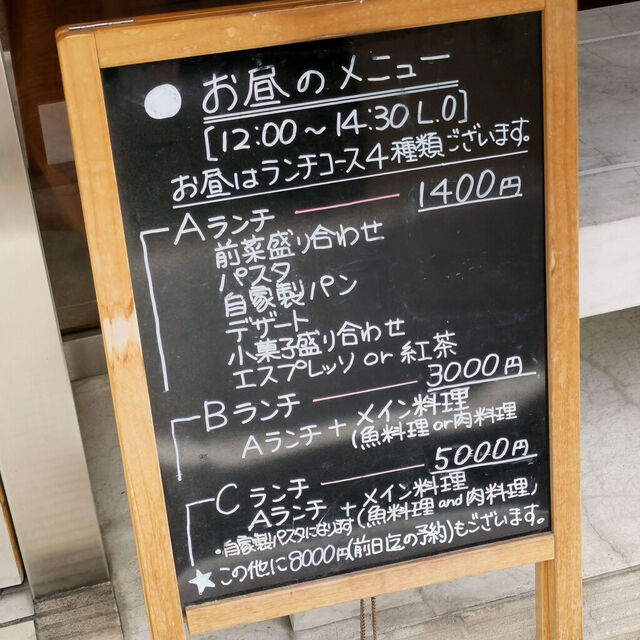 お昼のメニュー
[12:00～14:30 L.O]
お昼はランチコース4種類ございます。
Aランチ 1400円
前菜盛り合わせ
パスタ
自家製パン
デザート
小菓子盛り合わせ
エスプレッソ or 紅茶
Bランチ 3000円
Aランチ + メイン料理
(魚料理 or 肉料理
Cランチ 5000円
Aランチ + メイン料理
(魚料理 and 肉料理)
・自家製パスタになります
☆この他に8000円(前日迄の予約)もございます。